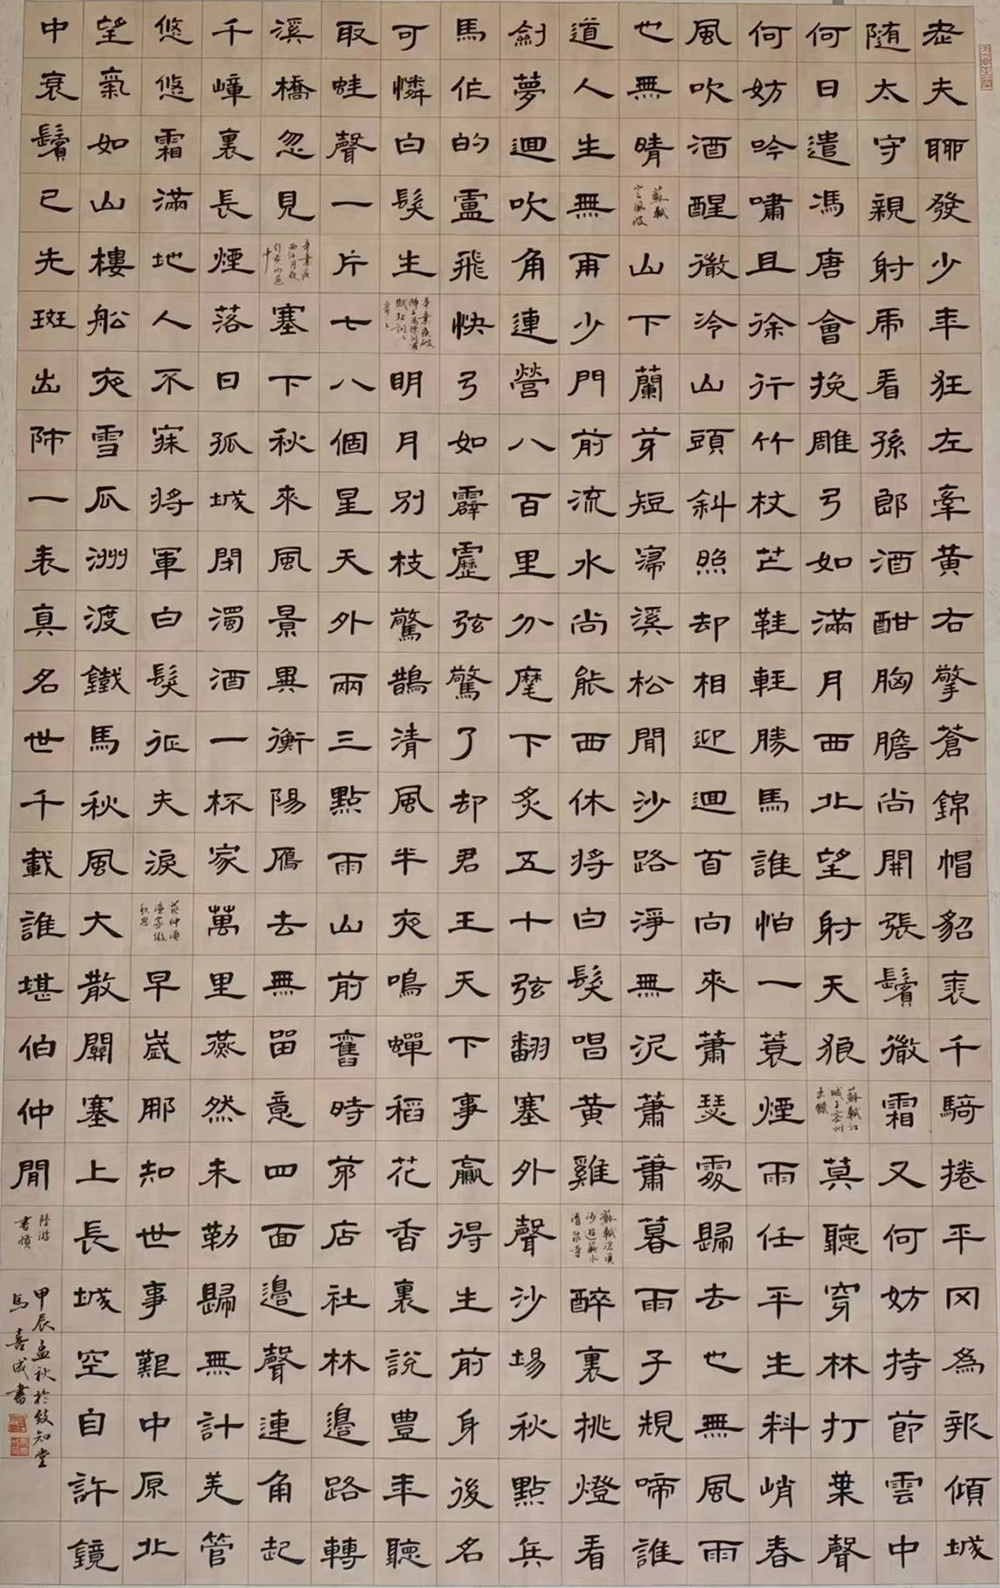 老夫聊發少年狂左牽黃右擎蒼錦帽貂裘千騎捲平冈為報傾城
随太守親射虎看孫郎酒酣胸膽尚開張鬢微霜又何妨持節雲中
何日遣馮唐會挽雕弓如滿月西北望射天狼蘇軾江城子密州出獵莫聽穿林打葉聲
何妨吟嘯且徐行竹杖芒鞋輕勝馬誰怕一蓑煙雨任平生料峭春
風吹酒醒微冷山頭斜照却相迎迴首向來蕭瑟處歸去也無風雨
也無晴蘇軾定風波山下蘭芽短寖溪松間沙路淨無泥蕭蕭暮雨子規啼誰
道人生無再少門前流水尚能西休將白髮唱黃雞蘇軾浣溪沙遊蘄水清泉寺醉裏挑燈看
劍夢迴吹角連營八百里分麾下炙五十弦翻塞外聲沙場秋點兵
馬作的盧飛快弓如霹靂弦驚了却君王天下事贏得生前身後名
可憐白髮生辛棄疾破陣子為陳同甫賦壯詞以寄之明月別枝驚鵲清風半夜鳴蟬稻花香裏說豐年聽
取蛙聲一片七八個星天外兩三點雨山前舊時茅店社林邊路轉
溪橋忽見辛棄疾西江月夜行黃沙道中塞下秋來風景異衡陽雁去無留意四面邊聲連角起
千嶂裏長煙落日孤城閉濁酒一杯家萬里燕然未勒歸無計羌管
悠悠霜滿地人不寐將軍白髮征夫淚范仲淹漁家傲秋思早歲那知世事艱中原北
望氣如山樓船夜雪瓜洲渡鐵馬秋風大散關塞上長城空自許鏡
中衰鬢已先斑出師一表真名世千載誰堪伯仲間陸游書憤
甲辰孟秋於致知堂
馬喜成書